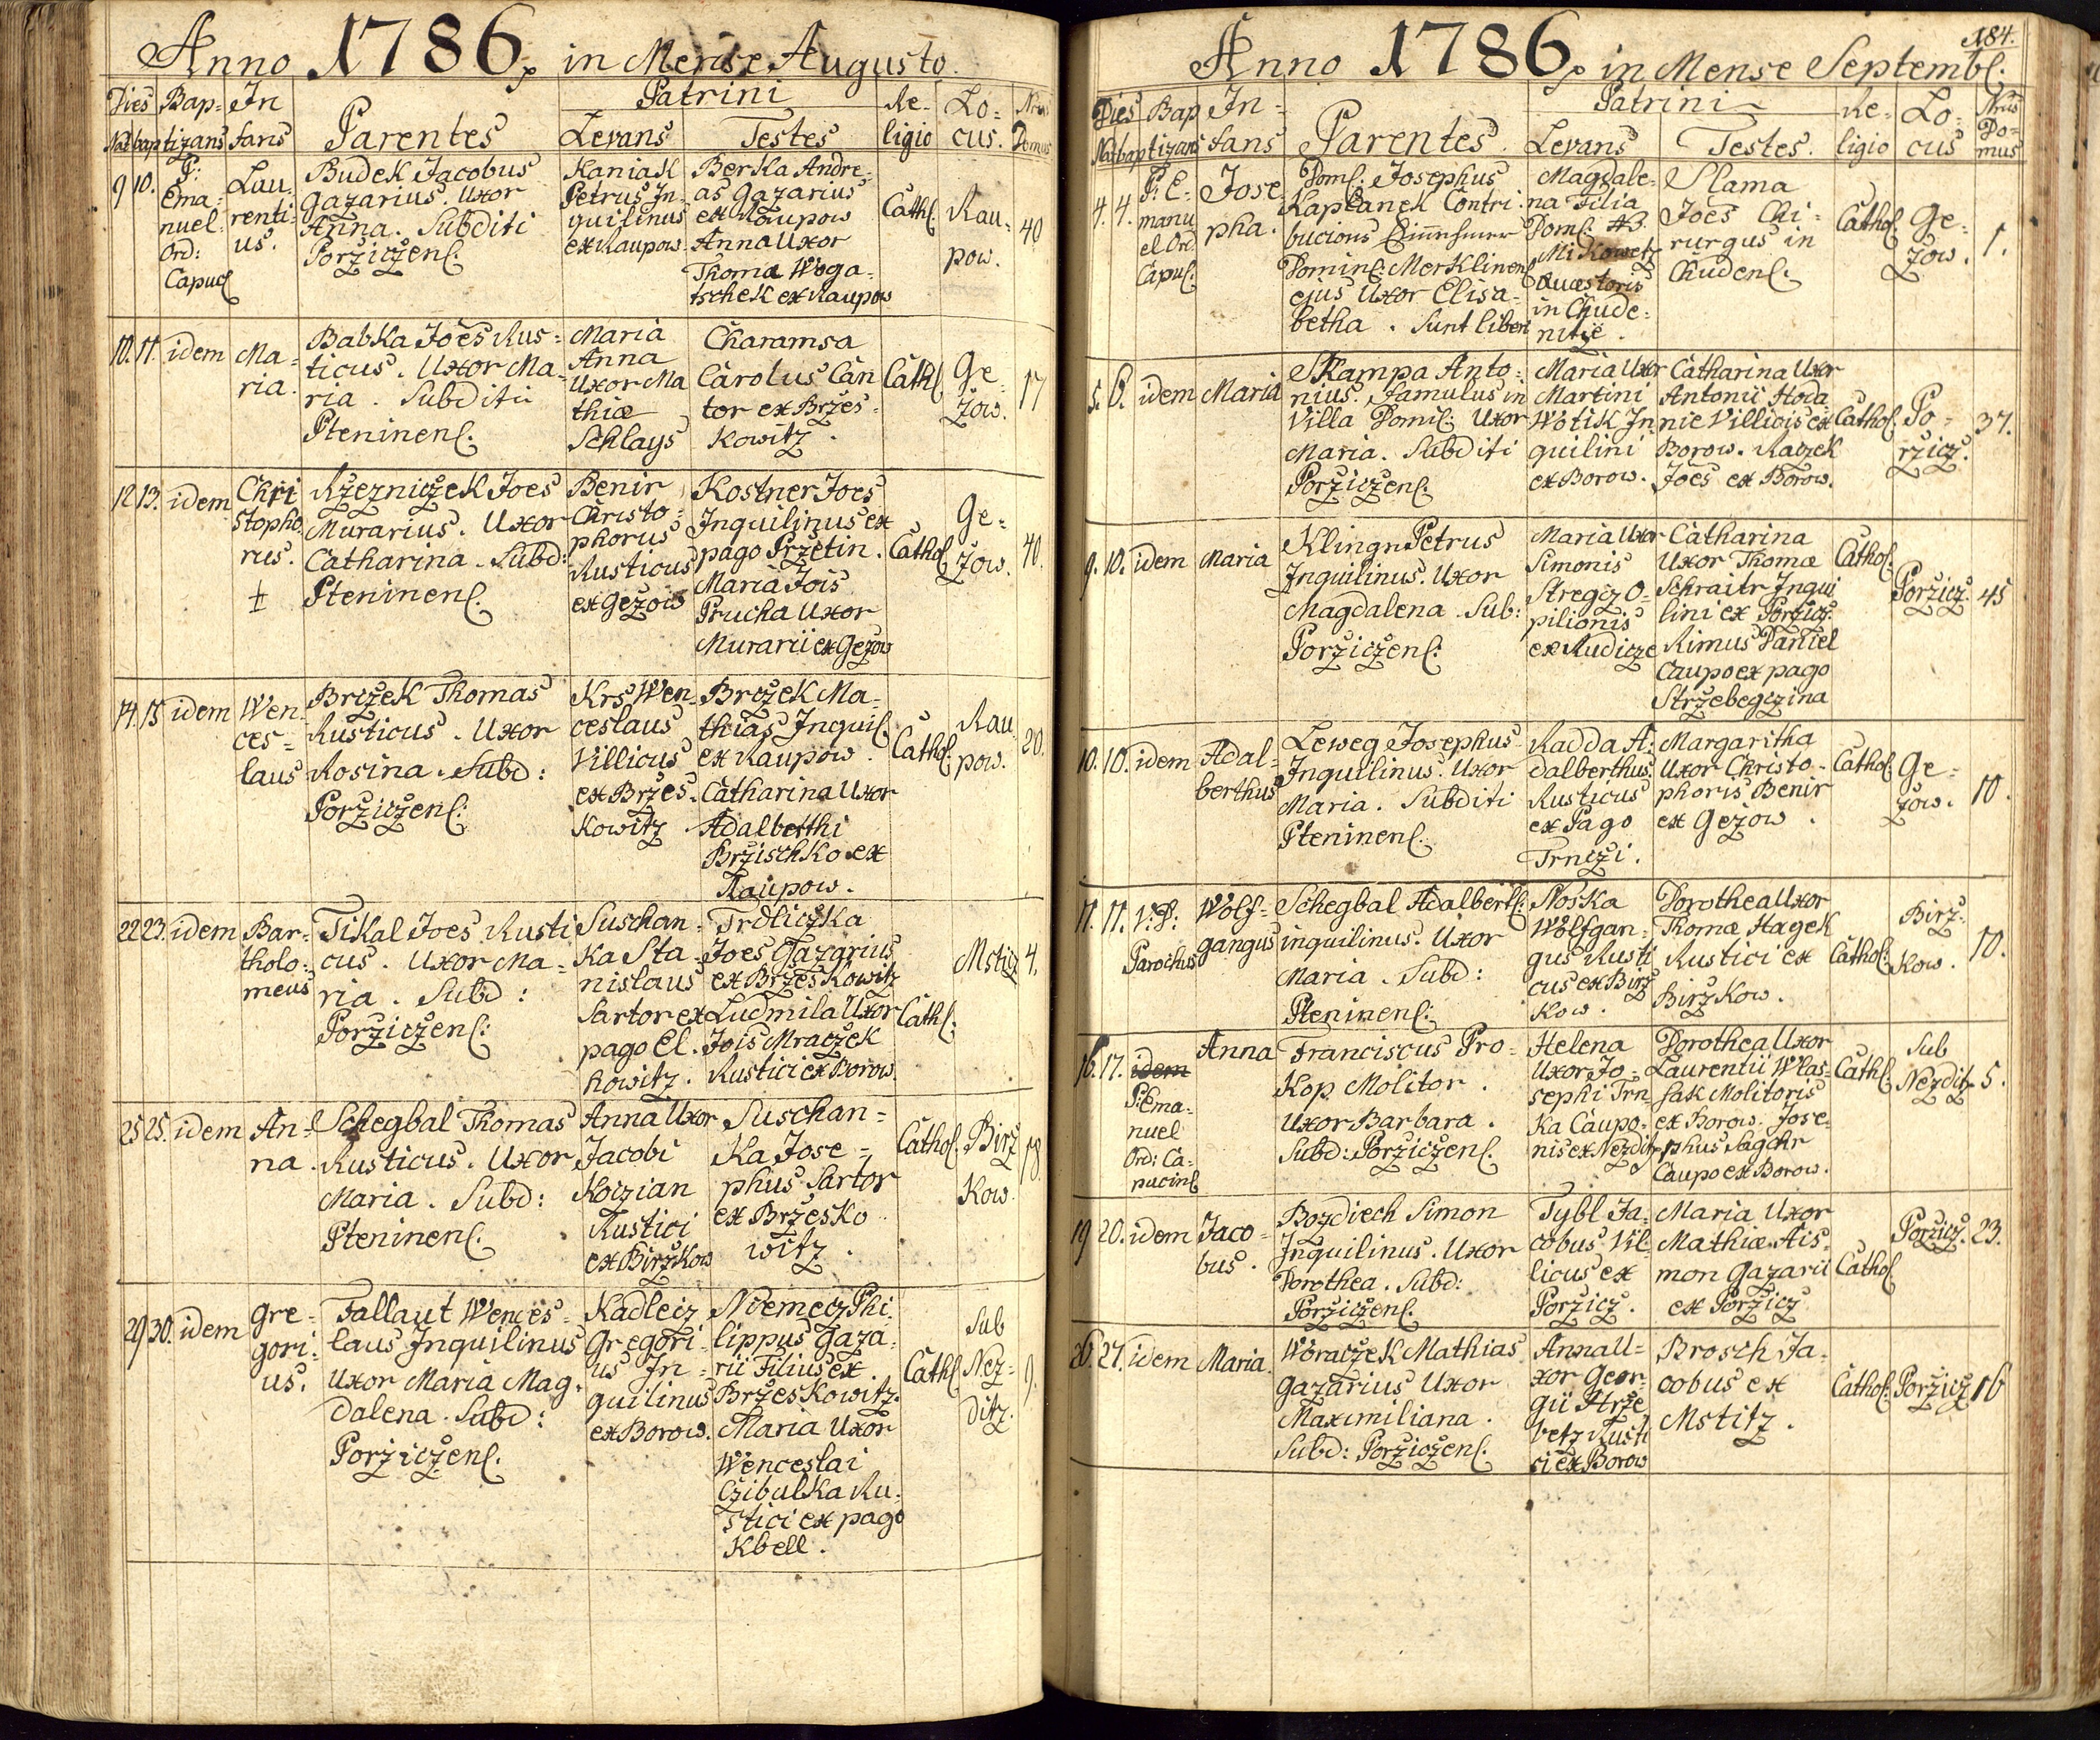 Anno 1786 in Mense Augusto.
Dies Bap= In Patrini Re- Lo= Nrus
Nat baptizans fans Parentes Levans Testes ligio cus. Domus
9 10. P: Ema= nuel Ord: Capuc
Lau= renti= us.
Budek Jacobus
Gazarius. Uxor
Anna. Subditi
Porziczen:
Kaniak
Petrus In=
quilinus
ex Raupow
Berka Andre=
as Gazarius
ex Raupow
Anna Uxor
Thomæ Woga=
tschek ex Raupow
Cath:
Rau=
pow.
40
10. 11. idem
Ma=
ria.
Babka Joes Rus=
ticus. Uxor Ma=
ria. Subditi
Pteninen:
Maria
Anna
Uxor Ma
thiæ
Schlays
Charamsa
Carolus Can
tor ex Brzes=
kowitz.
Cath:
Ge=
zow.
17
12 13. idem
Chri
stopho
rus.
‡
Rzezniczek Joes
Murarius. Uxor
Catharina. Subd:
Pteninen:
Benir
Christo=
phorus
Rusticus
ex Gezow
Kostner Joes
Inquilinus ex
pago Przetin.
Maria Jois
Prucha Uxor
Murarii ex Gezow
Cathol:
Ge=
zow.
40.
14. 15 idem
Wen=
ces=
laus
Brczek Thomas
Rusticus. Uxor
Rosina. Subd:
Porziczen:
Krs Wen
ceslaus
Villicus
ex Brzes=
kowitz
Brczek Ma=
thias Inquil:
ex Raupow.
Catharina Uxor
Adalberthi
Brzischko ex
Raupow.
Cathol:
Rau
pow.
20.
22 23. idem
Bar=
tholo=
meus
Tikal Joes Rusti
cus. Uxor Ma=
ria. Subd:
Porziczen:
Suschan=
ka Sta=
nislaus
Sartor ex
pago El.
howitz.
Trdliczka
Joes Gazarius
ex Brzeskowitz
Ludmila Uxor
Jois Mraczek
Rustici ex Borow.
Cath:
Mstitz
4.
25 25. idem
An=
na.
Schegbal Thomas
Rusticus. Uxor
Maria. Subd:
Pteninen:
Anna Uxor
Jacobi
Kozian
Rustici
ex Birzkow
Suschan=
ka Jose=
phus Sartor
ex Brzesko
witz.
Cathol:
Birz
kow.
18.
29 30. idem
Gre=
gori=
us.
Fallaut Wences=
laus Inquilinus
Uxor Maria Mag=
dalena. Subd:
Porziczen:
Kadlecz
Gregori=
us In=
quilinus
ex Borow.
Niemecz Phi=
lippus Gaza=
rii Filius ex
Brzeskowitz.
Maria Uxor
Wenceslai
Czibulka Ru=
stici ex pago
Kbell.
Cath:
Sub
Nez=
ditz.
9.
184.
Anno 1786 in Mense Septemb:
Dies Bap In= Patrini Re= Lo= Nrus
Nat baptizans fans Parentes. Levans Testes. ligio cus Do= mus
4. 4. P: E=
manu
el Ord
Capuc:
Jose
pha.
Dom: Josephus
Kaplanek Contri=
bucions Einnehmer
Domin: Merklinen
ejus Uxor Elisa=
betha. Sunt liberi
Magdale=
na Filia
Dom:
Mikowetz
Quæstoris
in Chude=
nitz.
Slama
Joes Chi=
rurgus in
Chuden:
Cathol:
Ge=
zow.
1.
5. 6. idem
Maria
Skampa Anto=
nius. Famulus in
Villa Domi: Uxor
Maria. Subditi
Porziczen:
Maria Uxor
Martini
Wotik In
quilini
ex Borow.
Catharina Uxor
Antonii Hoda
nie Villicis ex
Borow. Raczek
Joes ex Borow.
Cathol:
Po=
rzicz.
37.
9. 10. idem
Maria
Klingr Petrus
Inquilinus. Uxor
Magdalena. Sub:
Porziczen:
Maria Uxor
Simonis
Stregcz O=
pilionis
ex Rudicze
Catharina
Uxor Thomæ
Schraitr Inqui
lini ex Porzicz.
Rimus Daniel
Caupo ex pago
Strzebegczina
Cathol:
Porzicz.
45
10. 10. idem
Adal=
berthus
Leweg Josephus
Inquilinus. Uxor
Maria. Subditi
Pteninen:
Radda A=
dalberthus
Rusticus
ex Pago
Trnczi.
Margaritha
Uxor Christo=
phoris Benir
ex Gezow.
Cathol:
Ge=
zow.
10.
11. 11. Parochus
Wolf=
gangus
Schegbal Adalberth:
inquilinus. Uxor
Maria. Subd:
Pteninen:
Noska
Wolfgan=
gus Rusti
cus ex Birz
kow.
Dorothea Uxor
Thomæ Hagek
Rustici ex
Birzkow.
Cathol:
Birz=
kow.
10.
16. 17. idem
P: Ema=
nuel
Ord: Ca=
pucin:
Anna
Franciscus Pro=
kop Molitor.
Uxor Barbara.
Subd: Porziczen:
Helena
Uxor Jo=
sephi Trn
ka Caupo=
nis ex Nezditz
Dorothea Uxor
Laurentii Wlas=
sak Molitoris
ex Borow. Jose=
phus Sagehr
Caupo ex Borow.
Cath:
Sub
Nezditz
5.
19 20. idem
Jaco=
bus.
Bozdiech Simon
Inquilinus. Uxor
Dorothea. Subd:
Porziczen:
Tybl Ja=
cobus Vil=
licus ex
Porzicz.
Maria Uxor
Mathiæ Ais=
mon Gazarii
ex Porzicz
Cathol
Porzicz.
23.
26. 27. idem
Maria.
Woraczek Mathias
Gazarius Uxor
Maximiliana.
Subd: Porziczen:
Anna U=
xor Geor=
gii Hrze
betz Rusti
ci ex Borow
Brosch Ja=
cobus ex
Mstitz.
Cathol:
Porzicz
16